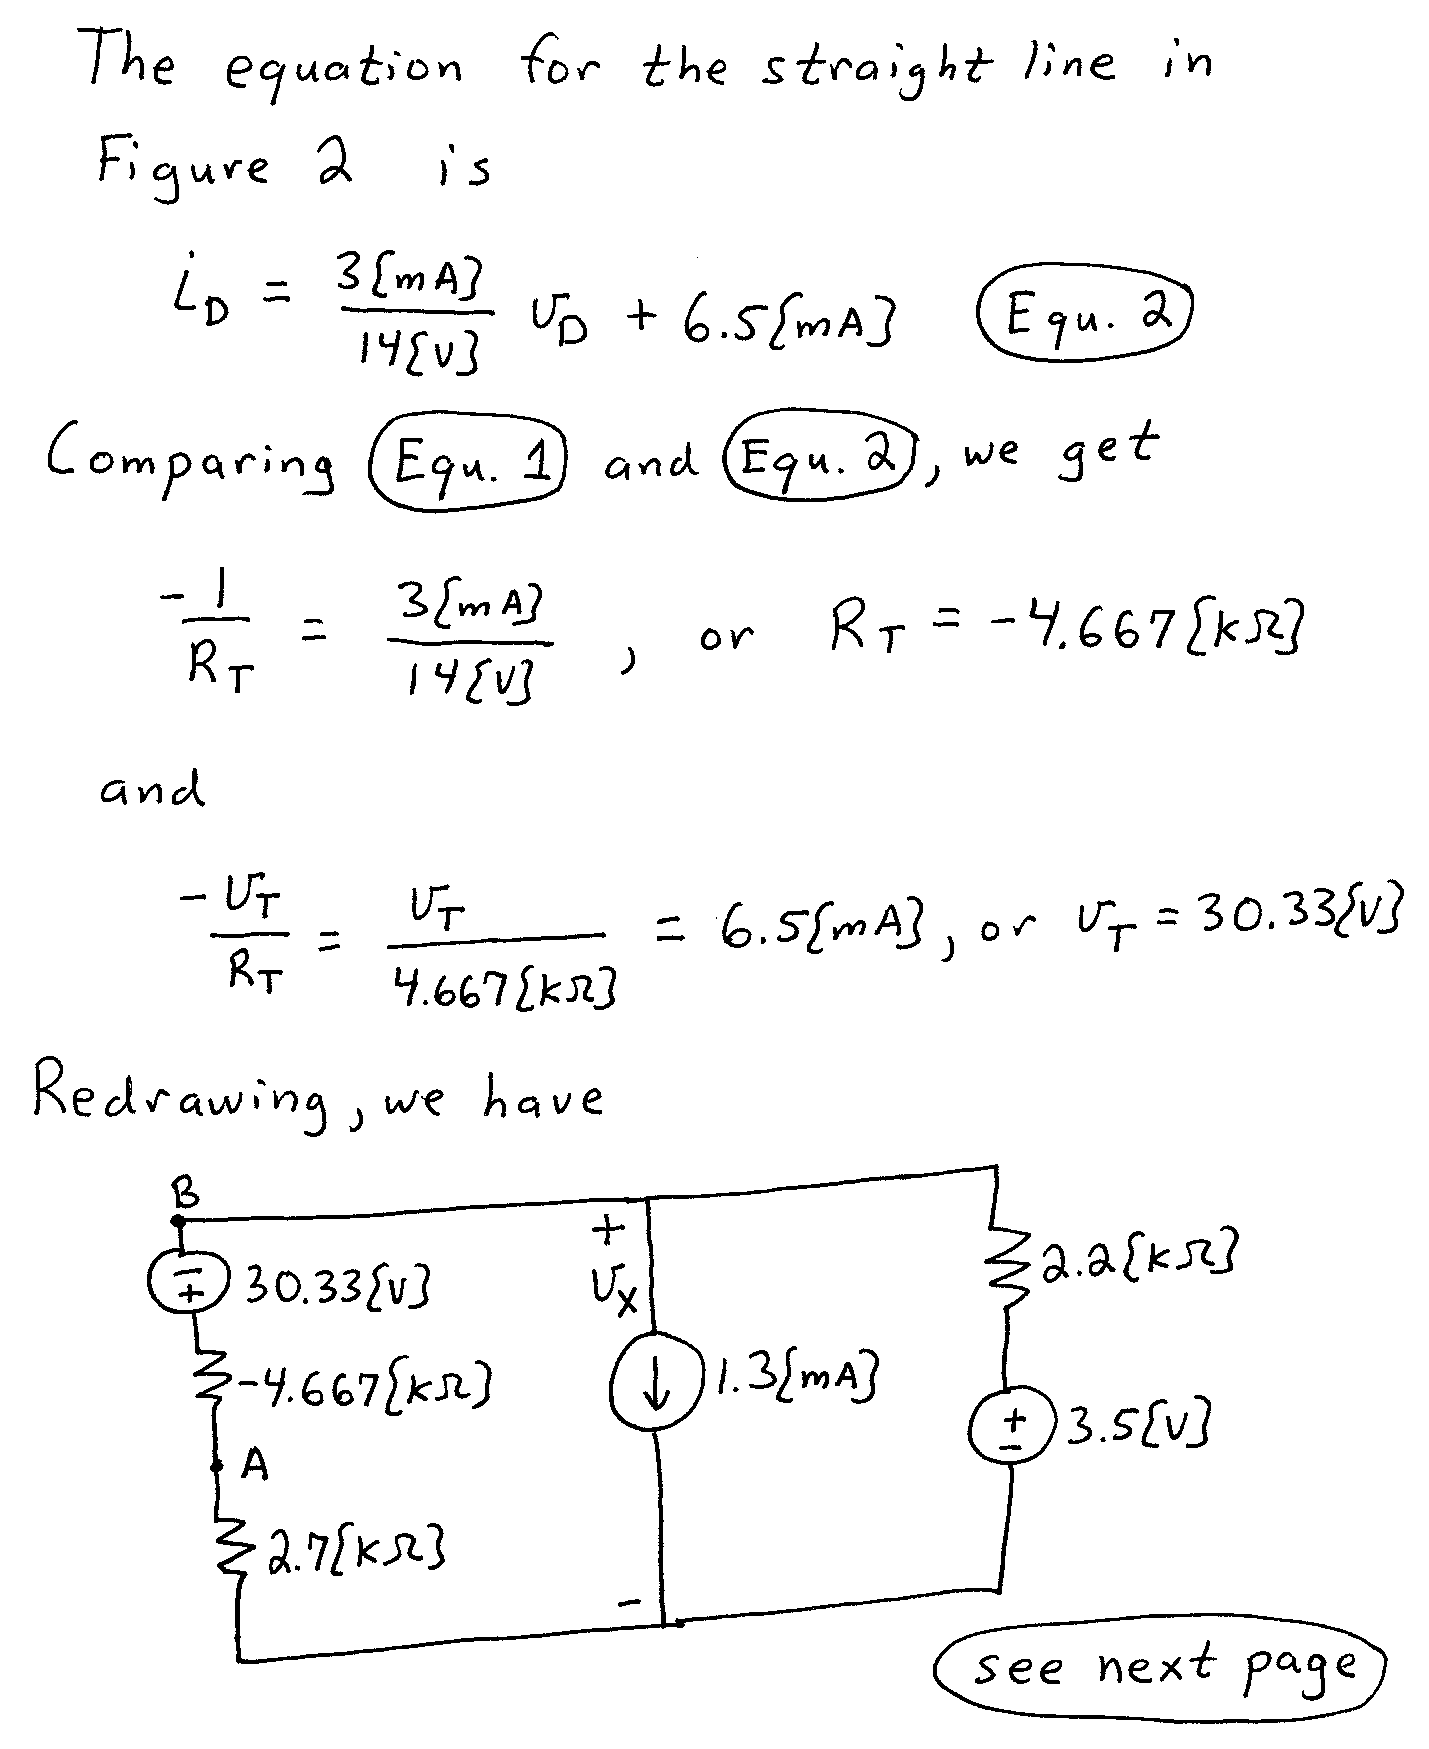 The equation for the straight line in
Figure 2 is
i_D = 3{mA} / 14{V} v_D + 6.5{mA} Equ. 2
Comparing Equ. 1 and Equ. 2, we get
-1 / R_T = 3{mA} / 14{V}, or R_T = -4.667{kΩ}
and
-v_T / R_T = v_T / 4.667{kΩ} = 6.5{mA}, or v_T = 30.33{V}
Redrawing, we have
B
- + 30.33{V}
-4.667{kΩ}
A
2.7{kΩ}
+
v_X
-
↓ 1.3{mA}
2.2{kΩ}
+ - 3.5{V}
see next page